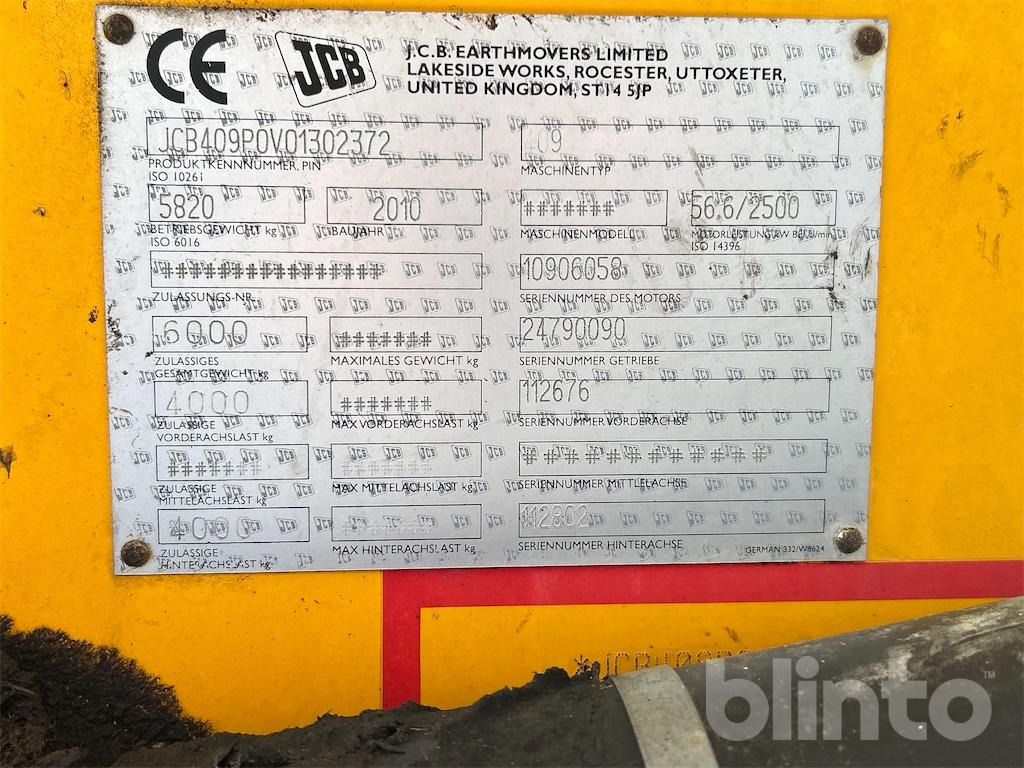 CE JCB J.C.B. EARTHMOVERS LIMITED
LAKESIDE WORKS, ROCESTER, UTTOXETER,
UNITED KINGDOM, ST14 5JP
JCB409P0V01302372 409
PRODUKTKENNNUMMER, PIN MASCHINENTYP
ISO 10261
5820 2010 ####### 56.6/2500
BETRIEBSGEWICHT kg BAUJAHR MASCHINENMODELL MOTORLEISTUNG kW BEI U/min
ISO 6016 ISO 14396
################# 10906058
ZULASSUNGS-NR. SERIENNUMMER DES MOTORS
6000 ####### 24790090
ZULASSIGES MAXIMALES GEWICHT kg SERIENNUMMER GETRIEBE
GESAMTGEWICHT kg
4000 ####### 112676
ZULASSIGE MAX VORDERACHSLAST kg SERIENNUMMER VORDERACHSE
VORDERACHSLAST kg
####### ####### ############
ZULASSIGE MAX MITTELACHSLAST kg SERIENNUMMER MITTLELACHSE
MITTELACHSLAST kg
4000 ####### 112802
ZULASSIGE MAX HINTERACHSLAST kg SERIENNUMMER HINTERACHSE
HINTERACHSLAST kg GERMAN 332/W8624
blinto™